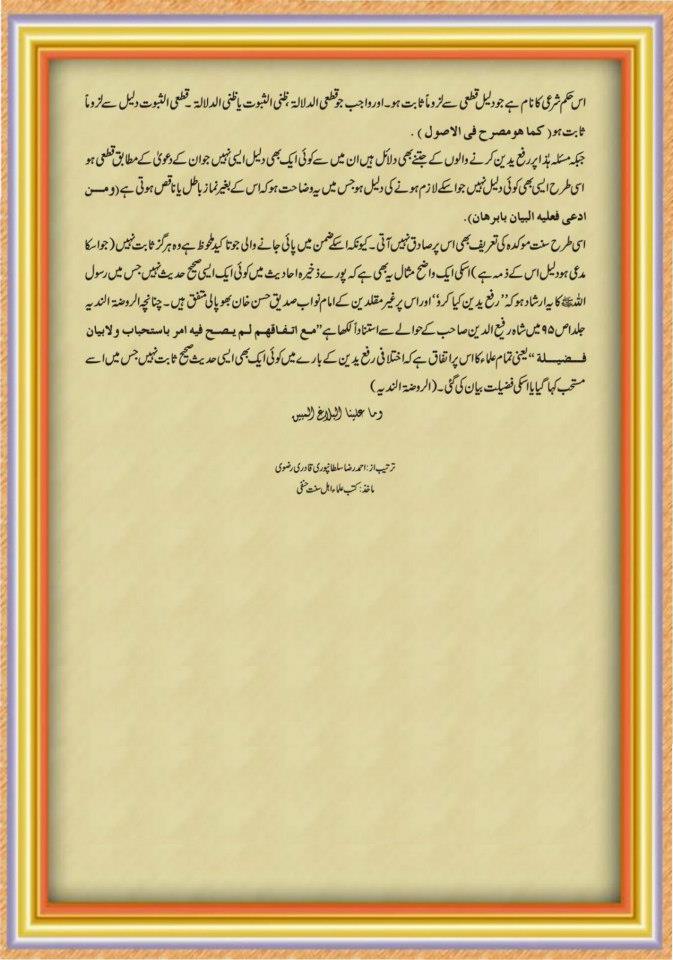 اس حکم شرعی کا نام ہے جو دلیل قطعی سے لزوماً ثابت ہو۔ اور واجب جو قطعی الدلالۃ، ظنی الثبوت یا ظنی الدلالۃ ۔ قطعی الثبوت دلیل سے لزوماً
ثابت ہو (کما ھو مصرح فی الاصول) .
جبکہ مسئلہ ہٰذا پر رفع یدین کرنے والوں کے جتنے بھی دلائل ہیں ان میں سے کوئی ایک بھی دلیل ایسی نہیں جو ان کے دعویٰ کے مطابق قطعی ہو
اسی طرح ایسی بھی کوئی دلیل نہیں جو اسکے لازم ہونے کی دلیل ہو جس میں یہ وضاحت ہو کہ اس کے بغیر نماز باطل یا ناقص ہوتی ہے (ومن
ادعی فعلیه البیان بابرھان).
اسی طرح سنت موکدہ کی تعریف بھی اس پر صادق نہیں آتی ۔ کیونکہ اسکے ضمن میں پائی جانے والی جو تاکید ملحوظ ہے وہ ہرگز ثابت نہیں (جو اسکا
مدعی ہو دلیل اس کے ذمہ ہے) اسکی ایک واضح مثال یہ بھی ہے کہ پورے ذخیرہ احادیث میں کوئی ایک ایسی صحیح حدیث نہیں جس میں رسول
اللہ ﷺ کا یہ ارشاد ہو کہ ”رفع یدین کیا کرو“ اور اس پر غیر مقلدین کے امام نواب صدیق حسن خان بھوپالی متفق ہیں ۔ چنانچہ الروضۃ الندیہ
جلد ا ص ۹۵ میں شاہ رفیع الدین صاحب کے حوالے سے استناداً لکھا ہے ”مع اتفاقھم لم یصح فیه امر باستحباب ولابیان
فضیلة“ یعنی تمام علماء کا اس پر اتفاق ہے کہ اختلافی رفع یدین کے بارے میں کوئی ایک بھی ایسی حدیث صحیح ثابت نہیں جس میں اسے
مستحب کہا گیا یا اسکی فضیلت بیان کی گئی ۔ (الروضۃ الندیہ)
وما علینا البلاغ المبین
ترتیب از: احمد رضا سلطانپوری قادری رضوی
ماخذ: کتب علماء اہل سنت حنفی